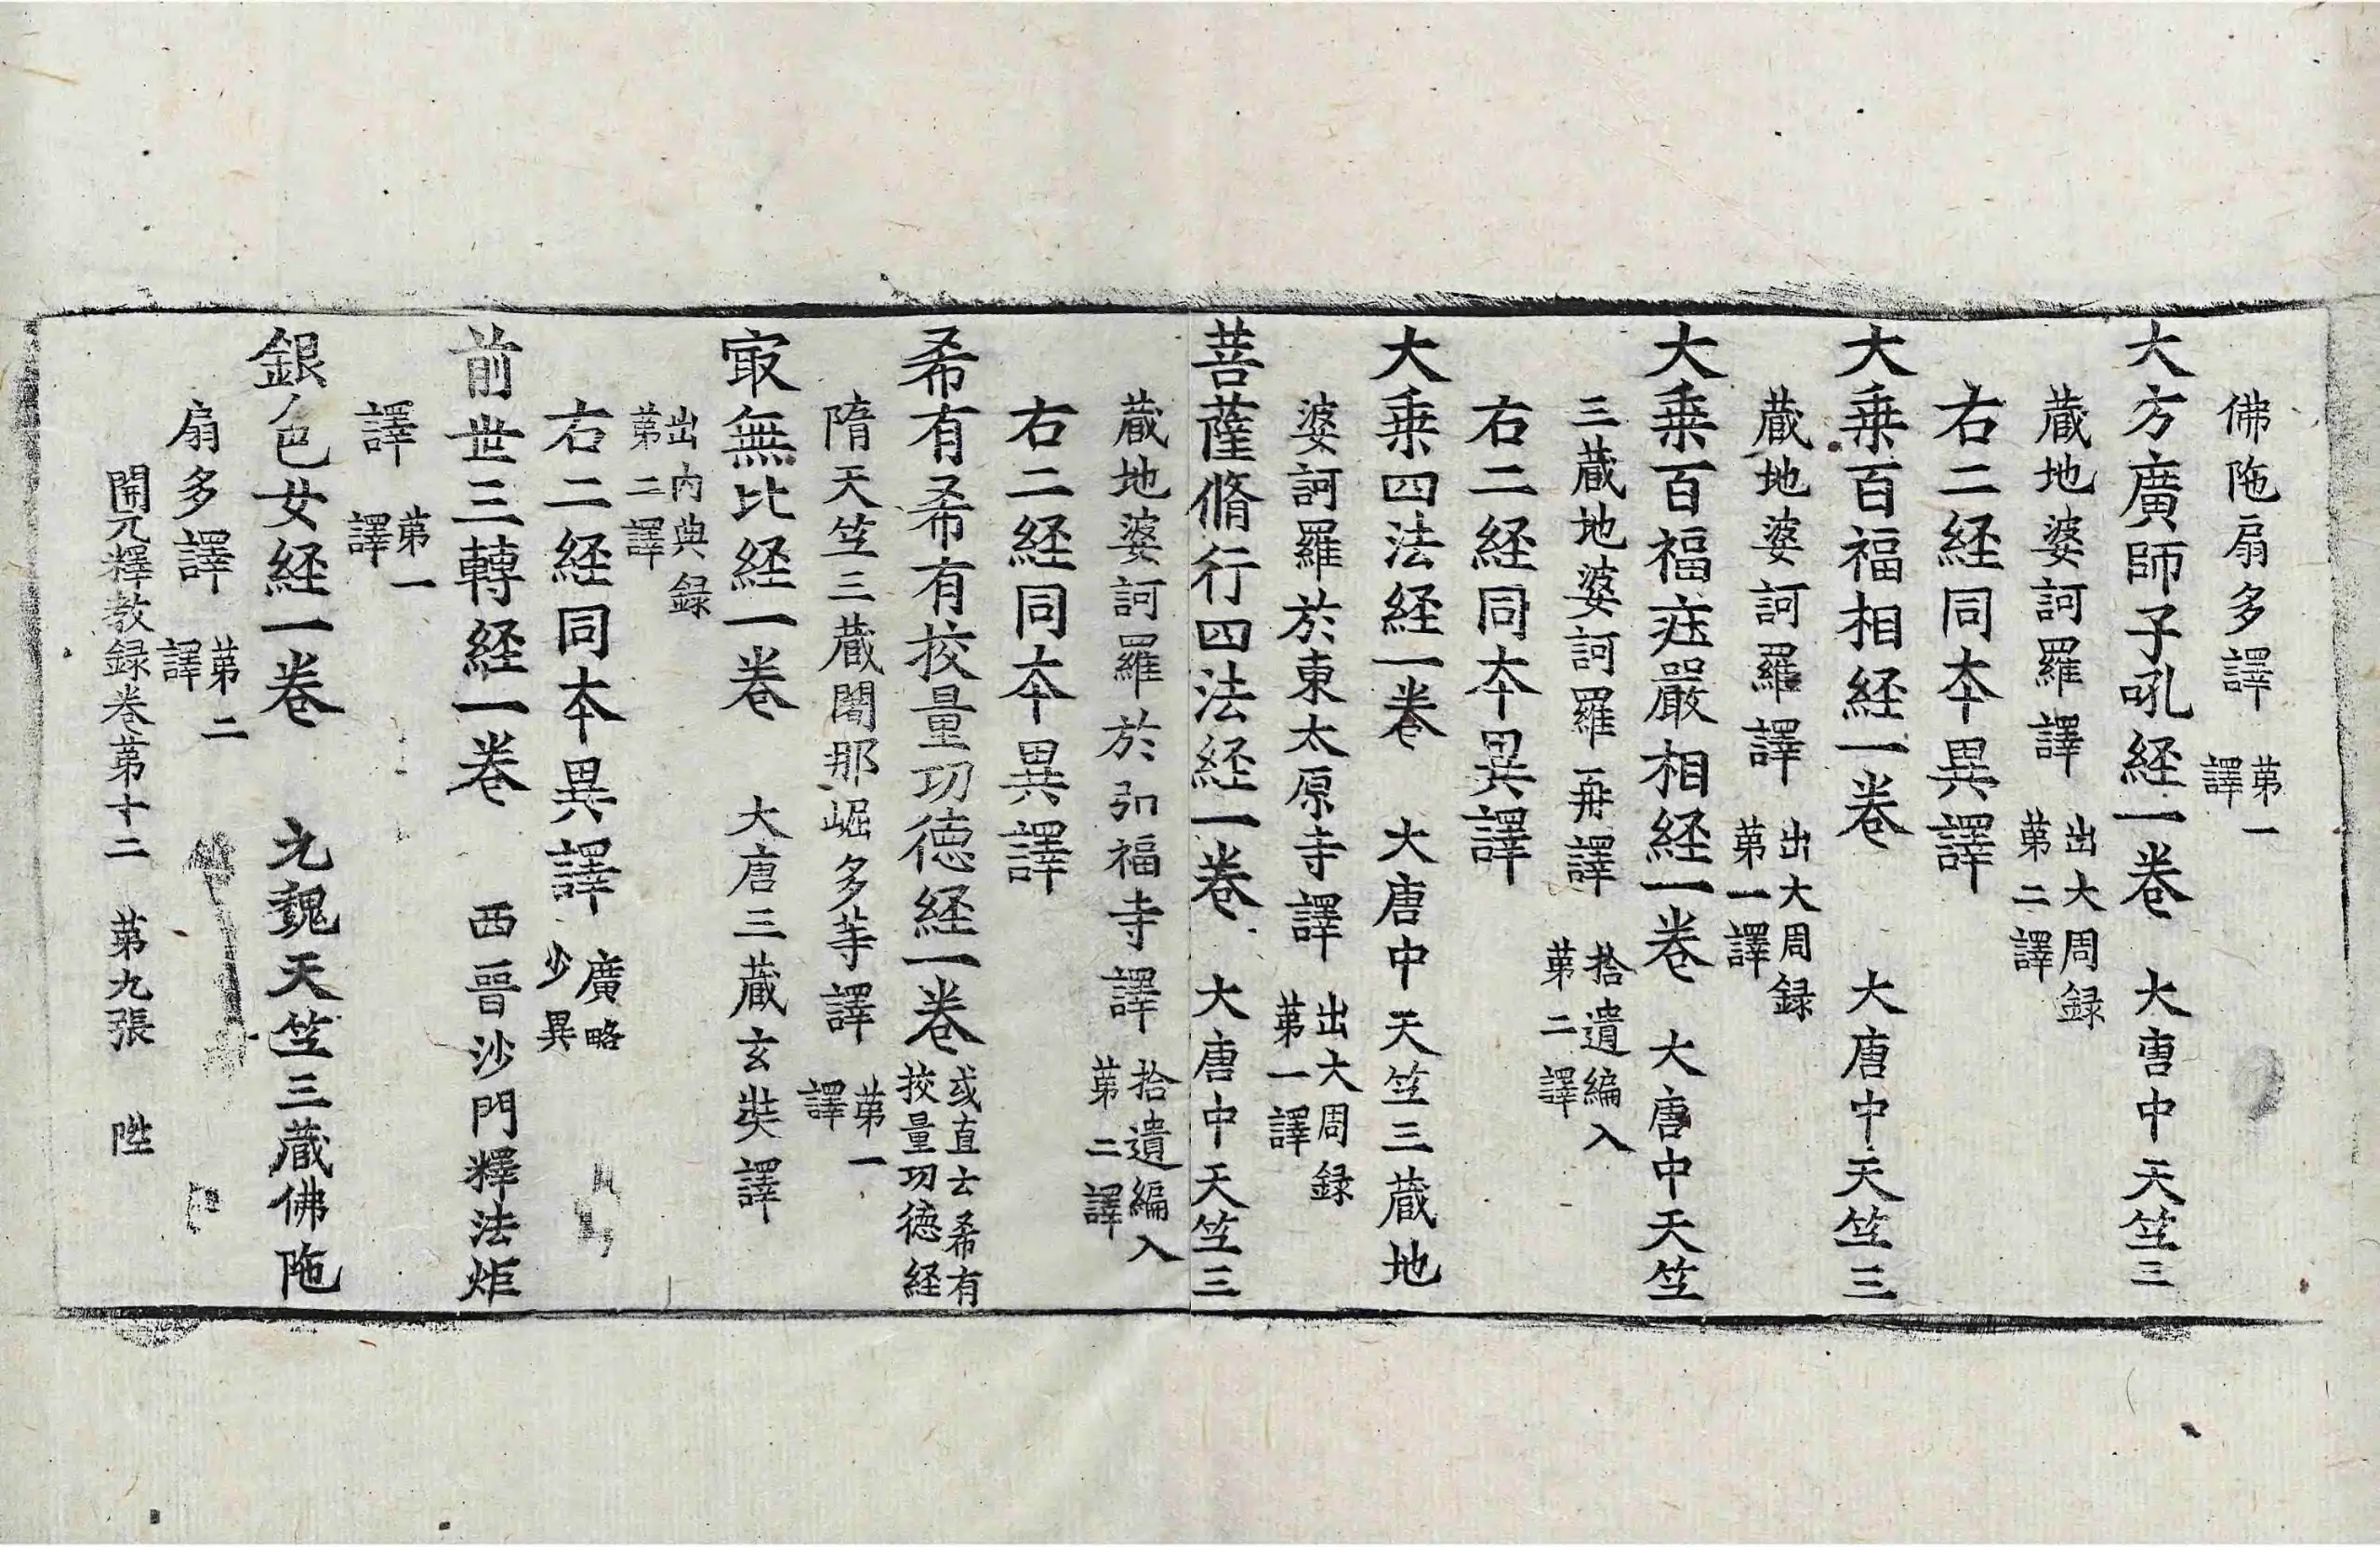 佛陁扇多譯 苐一譯
大方廣師子吼経一卷 大唐中天笁三
蔵地婆訶羅譯 出大周録苐二譯
右二経同夲異譯
大乗百福相経一卷 大唐中天笁三
蔵地婆訶羅譯 出大周録苐一譯
大乗百福㽵嚴相経一卷 大唐中天笁
三蔵地婆訶羅再譯 拾遺編入苐二譯
右二経同夲異譯
大乗四法経一卷 大唐中天笁三蔵地
婆訶羅於東太原寺譯 出大周録苐一譯
菩薩脩行四法経一卷 大唐中天笁三
蔵地婆訶羅於弘福寺譯 拾遺編入苐二譯
右二経同夲異譯
希有希有挍量功德経一卷 或直云希有挍量功德経
隋天笁三蔵闍那崛多䓁譯 苐一譯
㝡無比経一卷 大唐三蔵玄奘譯
出内典録苐二譯
右二経同夲異譯 廣略少異
前世三轉経一卷 西晉沙門釋法炬
譯 苐一譯
銀色女経一卷 元魏天笁三蔵佛陁
扇多譯 苐二譯
開元釋教録卷苐十二 苐九張 陞